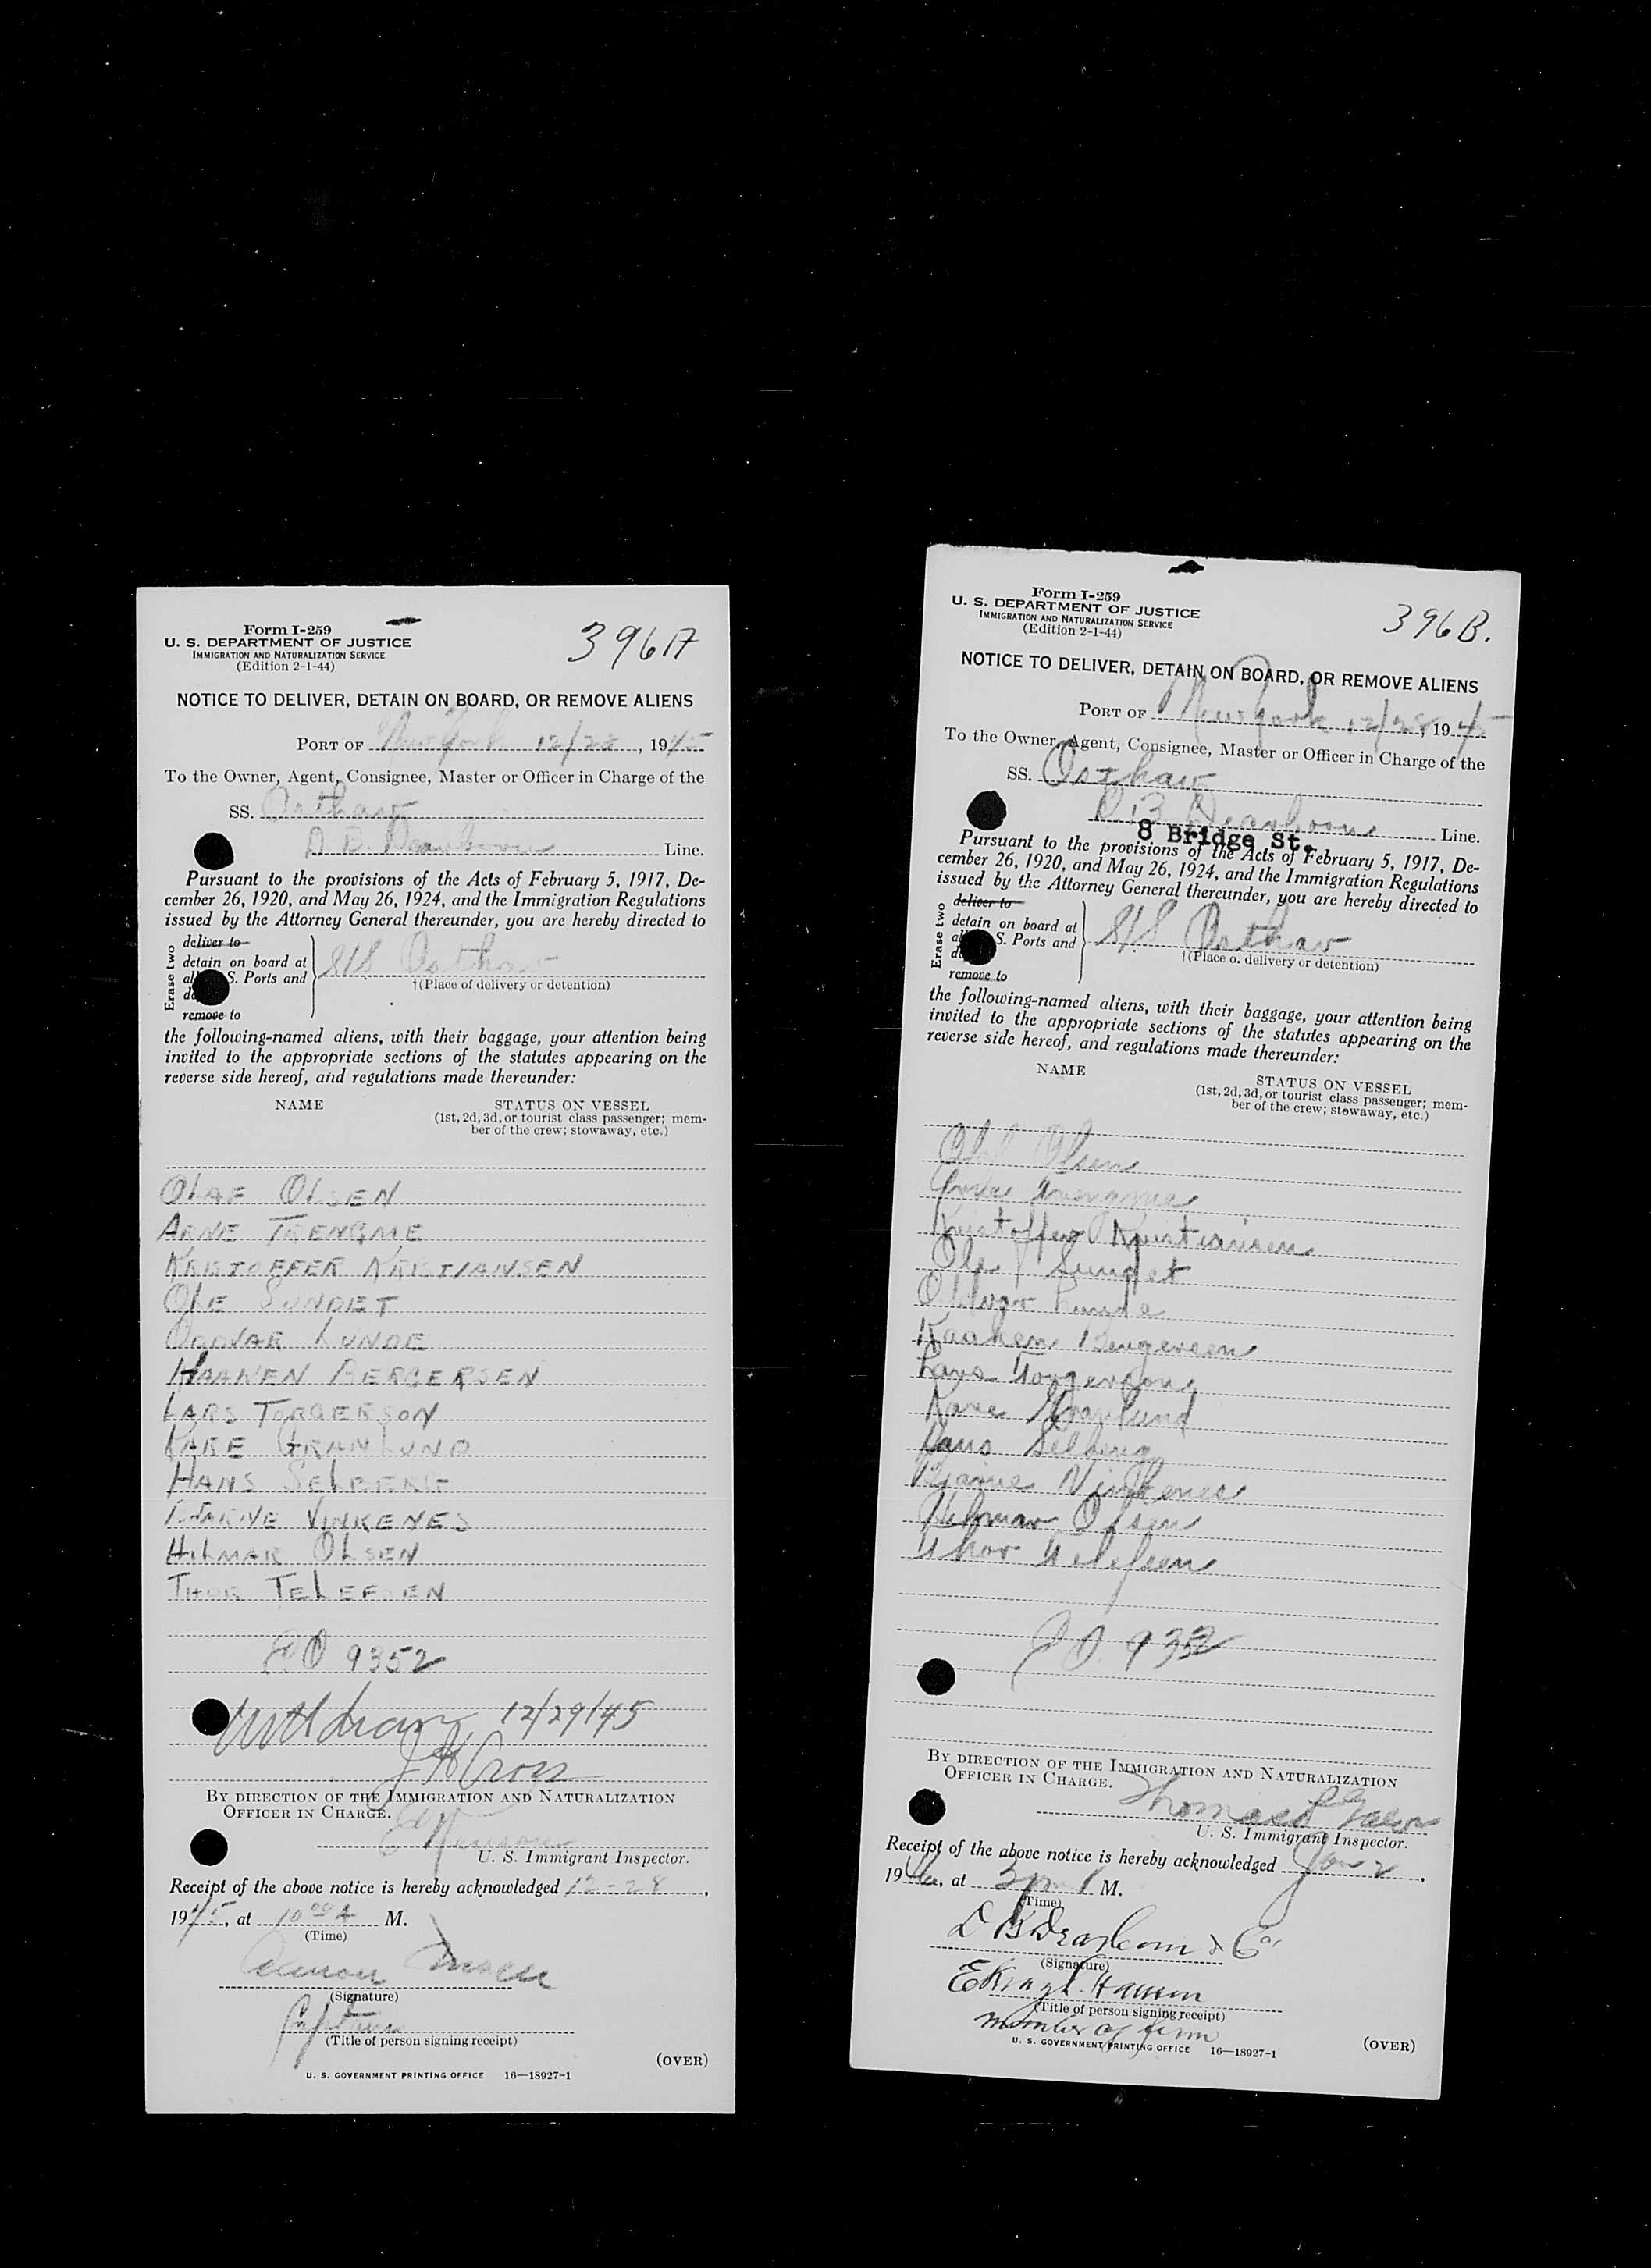 Form I-259
U. S. DEPARTMENT OF JUSTICE
IMMIGRATION AND NATURALIZATION SERVICE
(Edition 2-1-44)
396A
NOTICE TO DELIVER, DETAIN ON BOARD, OR REMOVE ALIENS
PORT OF New York 12/28, 1945
To the Owner, Agent, Consignee, Master or Officer in Charge of the
SS. Osthav
D. B. Dearborn Line.
Pursuant to the provisions of the Acts of February 5, 1917, De-
cember 26, 1920, and May 26, 1924, and the Immigration Regulations
issued by the Attorney General thereunder, you are hereby directed to
Erase two
deliver to
detain on board at
S. Ports and
remove to
S/S Osthav
†(Place of delivery or detention)
the following-named aliens, with their baggage, your attention being
invited to the appropriate sections of the statutes appearing on the
reverse side hereof, and regulations made thereunder:
NAME
STATUS ON VESSEL
(1st, 2d, 3d, or tourist class passenger; mem-
ber of the crew; stowaway, etc.)
OLAF OLSEN
ARNE TRENGME
KRISTOFFER KRISTIANSEN
OLE SUNDET
ODDVAR LUNDE
HAAKEN BERGERSEN
LARS TORGERSON
KARE GRANLUND
HANS SELBERG
BJARNE VINKENES
HILMAR OLSEN
THOR TELEFSEN
9352
12/29/45
J H Cross
BY DIRECTION OF THE IMMIGRATION AND NATURALIZATION
OFFICER IN CHARGE.
U. S. Immigrant Inspector.
Receipt of the above notice is hereby acknowledged 12-28,
1945, at 10 00 A M.
(Time)
(Signature)
Captain
(Title of person signing receipt)
(OVER)
U. S. GOVERNMENT PRINTING OFFICE 16—18927-1
Form I-259
U. S. DEPARTMENT OF JUSTICE
IMMIGRATION AND NATURALIZATION SERVICE
(Edition 2-1-44)
396B.
NOTICE TO DELIVER, DETAIN ON BOARD, OR REMOVE ALIENS
PORT OF New York 12/28, 1945
To the Owner, Agent, Consignee, Master or Officer in Charge of the
SS. Osthav
D B Dearborn Line.
8 Bridge St.
Pursuant to the provisions of the Acts of February 5, 1917, De-
cember 26, 1920, and May 26, 1924, and the Immigration Regulations
issued by the Attorney General thereunder, you are hereby directed to
Erase two
deliver to
detain on board at
S. Ports and
remove to
S/S Osthav
†(Place of delivery or detention)
the following-named aliens, with their baggage, your attention being
invited to the appropriate sections of the statutes appearing on the
reverse side hereof, and regulations made thereunder:
NAME
STATUS ON VESSEL
(1st, 2d, 3d, or tourist class passenger; mem-
ber of the crew; stowaway, etc.)
Olaf Olsen
Kristoffer Kristiansen
Ole Sundet
Oddvar Lunde
Haaken Bergersen
Lars Torgerson
Kare Granlund
Hans Selberg
Bjarne Vinkenes
Hilmar Olsen
Thor Telefsen
BY DIRECTION OF THE IMMIGRATION AND NATURALIZATION
OFFICER IN CHARGE.
Thomas
U. S. Immigrant Inspector.
Receipt of the above notice is hereby acknowledged Jan 2,
1946, at 3 pm M.
(Time)
D B Dearborn & Co
(Signature)
Hansen
(Title of person signing receipt)
member of firm
U. S. GOVERNMENT PRINTING OFFICE 16—18927-1
(OVER)